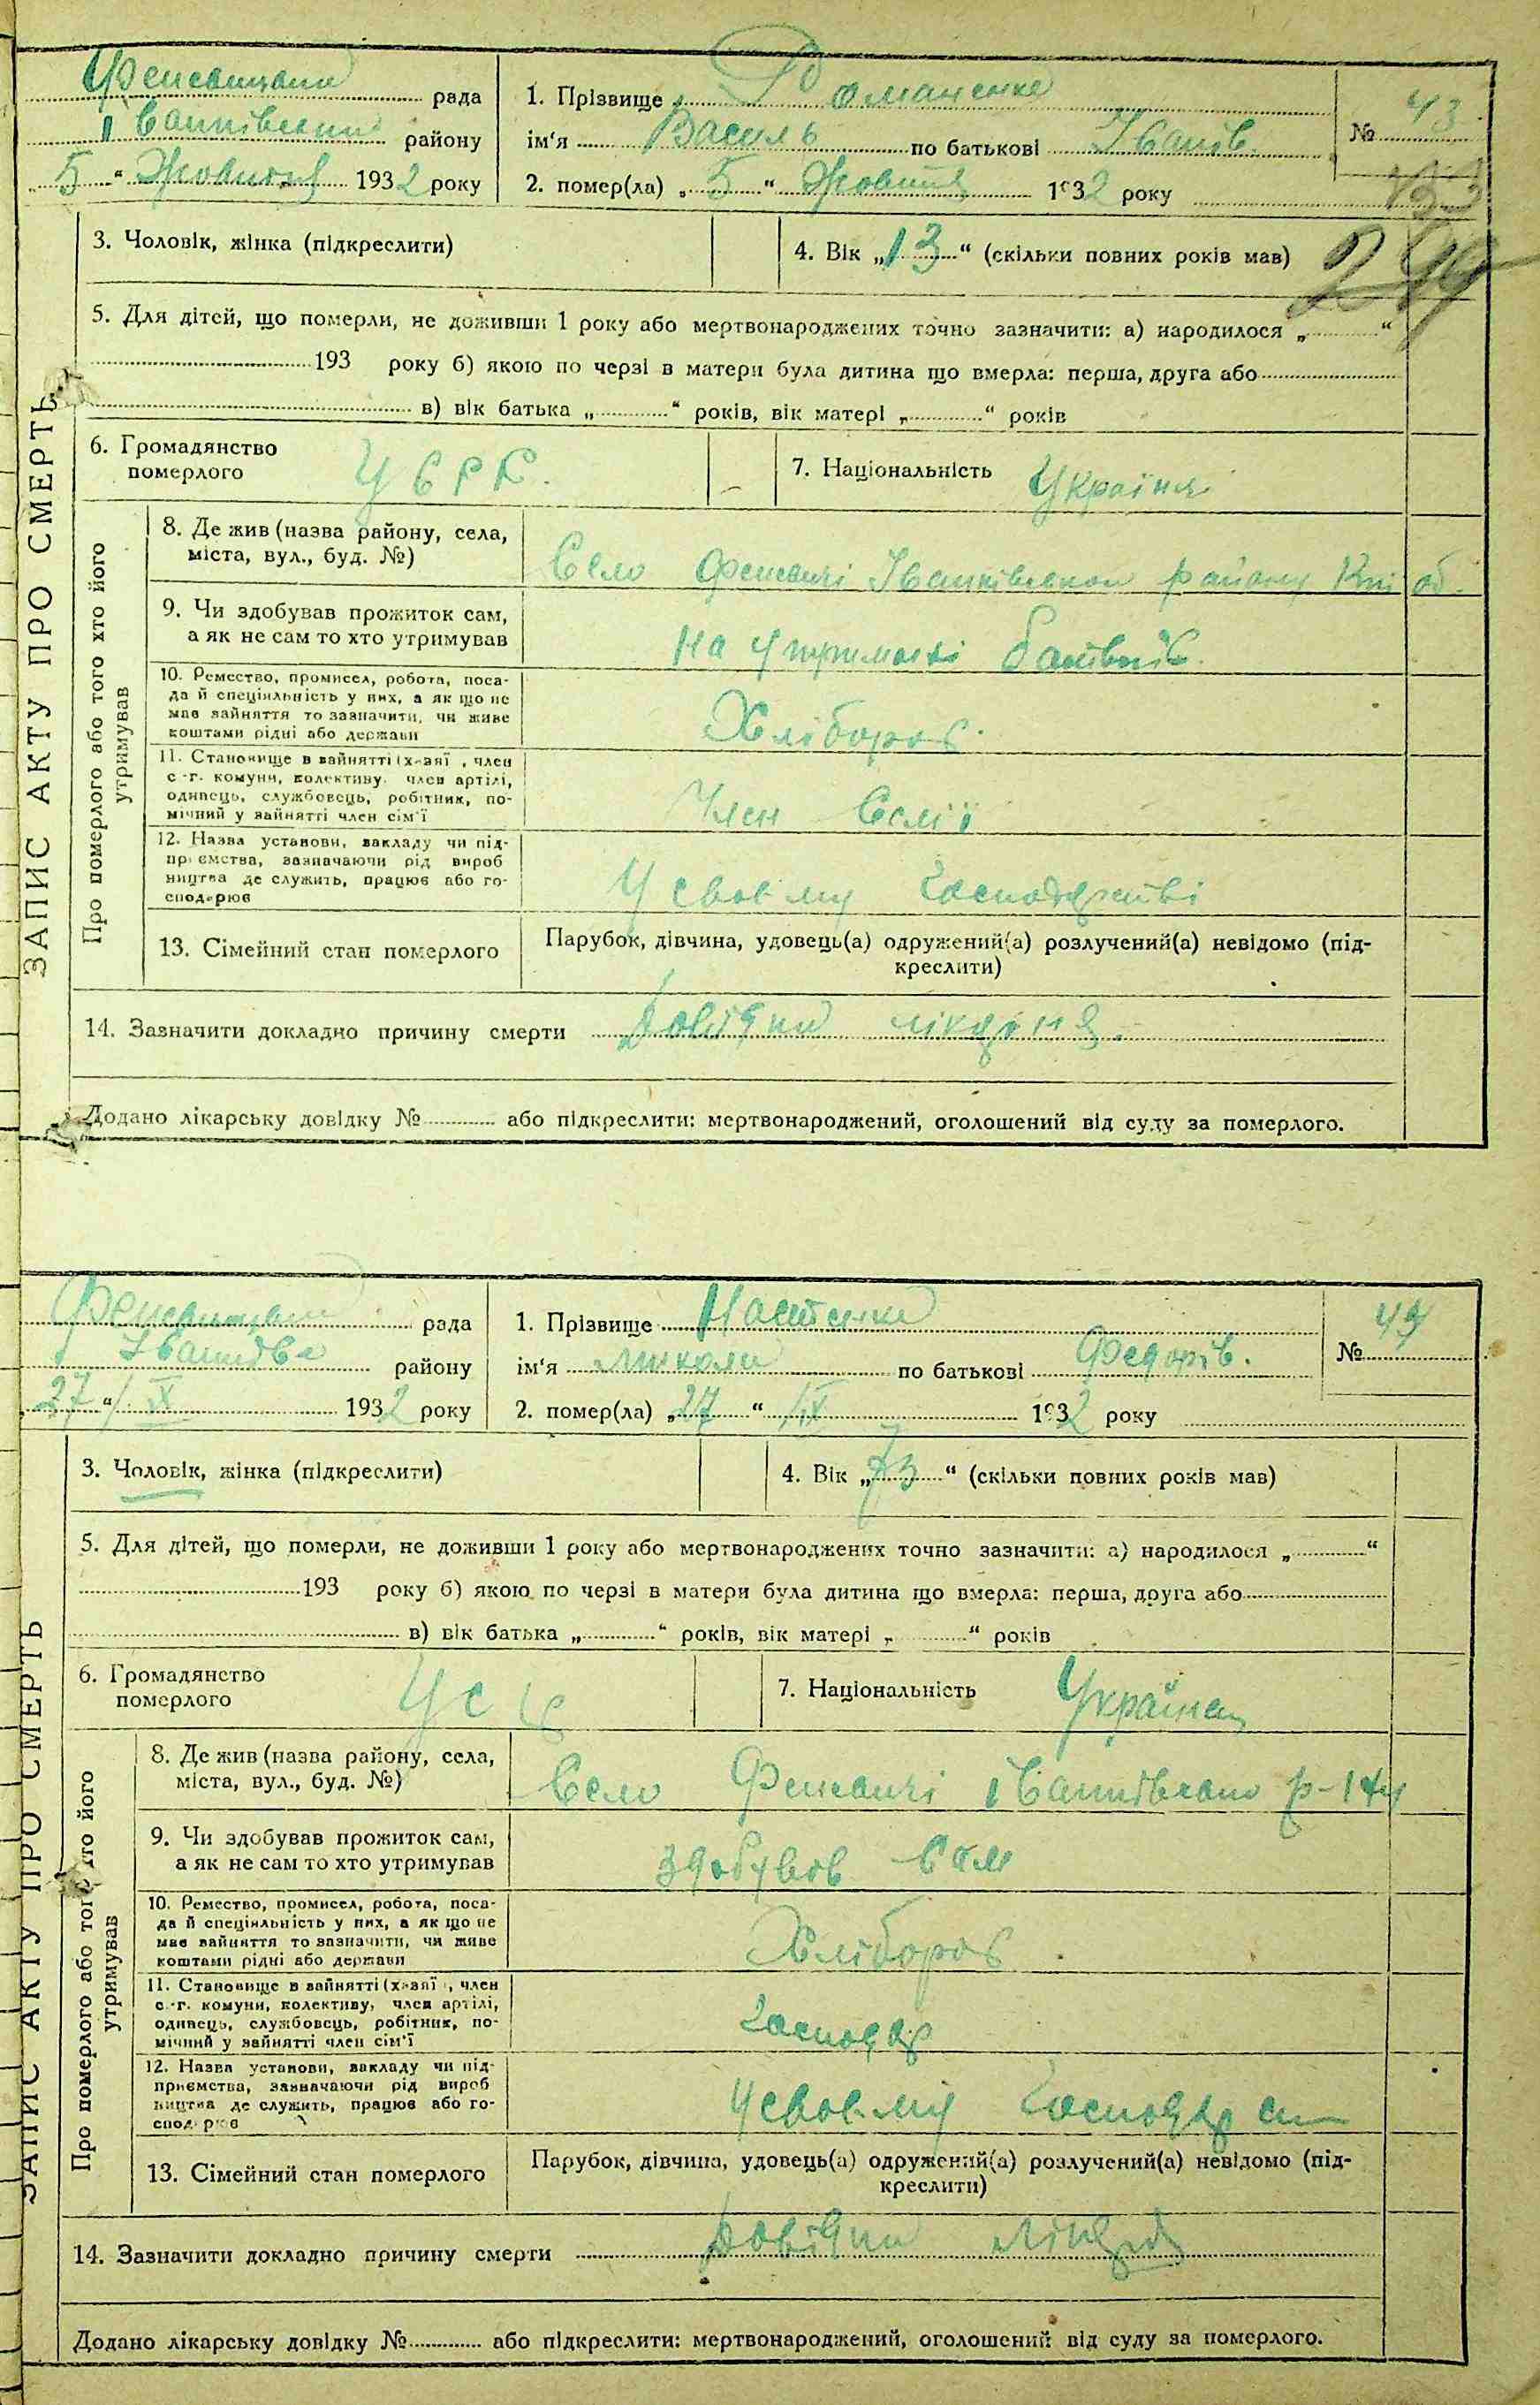 рада
району
5 " Жовтня 1932 року
1. Прізвище Романенко
ім'я Василь по батькові Іванів.
№ 43
2. помер(ла) „ 5 " Жовтня 1932 року
3. Чоловік, жінка (підкреслити)
4. Вік „ 13 " (скільки повних років мав)
5. Для дітей, що померли, не доживши 1 року або мертвонароджених точно зазначити: а) народилося „ "
193 року б) якою по черзі в матери була дитина що вмерла: перша, друга або
в) вік батька „ " років, вік матері „ " років
6. Громадянство
померлого
УСРР.
7. Національність
ЗАПИС АКТУ ПРО СМЕРТЬ
Про померлого або того хто його
утримував
8. Де жив (назва району, села,
міста, вул., буд. №)
Село Феневичі Іванківського району
9. Чи здобував прожиток сам,
а як не сам то хто утримував
на утриманні батьків.
10. Ремество, промисел, робота, поса-
да й спеціяльність у них, а як що не
має зайняття то зазначити, чи живе
коштами рідні або держави
Хлібороб.
11. Становище в зайнятті (х-зяї , член
с.-г. комуни, колективу, член артілі,
одинець, службовець, робітник, по-
мічний у зайнятті член сім'ї
Член Семії
12. Назва установи, закладу чи під-
приємства, зазначаючи рід вироб
ництва де служить, працює або го-
сподарює
У своєму господарстві
13. Сімейний стан померлого
Парубок, дівчина, удовець(а) одружений(а) розлучений(а) невідомо (під-
креслити)
14. Зазначити докладно причину смерти
Додано лікарську довідку № або підкреслити: мертвонароджений, оголошений від суду за померлого.
рада
району
27 " ІХ 1932 року
1. Прізвище
ім'я Микола по батькові Федорів.
№
2. помер(ла) „ 27 " ІХ 1932 року
3. Чоловік, жінка (підкреслити)
4. Вік „ 73 " (скільки повних років мав)
5. Для дітей, що померли, не доживши 1 року або мертвонароджених точно зазначити: а) народилося „ "
193 року б) якою по черзі в матери була дитина що вмерла: перша, друга або
в) вік батька „ " років, вік матері „ " років
6. Громадянство
померлого
7. Національність Українец
ЗАПИС АКТУ ПРО СМЕРТЬ
Про померлого або того хто його
утримував
8. Де жив (назва району, села,
міста, вул., буд. №)
Село Феневичі
9. Чи здобував прожиток сам,
а як не сам то хто утримував
здобував сам
10. Ремество, промисел, робота, поса-
да й спеціяльність у них, а як що не
має зайняття то зазначити, чи живе
коштами рідні або держави
Хлібороб.
11. Становище в зайнятті (х-зяї , член
с.-г. комуни, колективу, член артілі,
одинець, службовець, робітник, по-
мічний у зайнятті член сім'ї
господар
12. Назва установи, закладу чи під-
приємства, зазначаючи рід вироб
ництва де служить, працює або го-
сподарює
У своєму
13. Сімейний стан померлого
Парубок, дівчина, удовець(а) одружений(а) розлучений(а) невідомо (під-
креслити)
14. Зазначити докладно причину смерти
Додано лікарську довідку № або підкреслити: мертвонароджений, оголошений від суду за померлого.